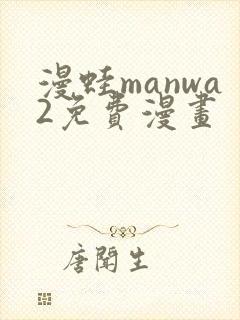 漫蛙manwa
2免費漫畫
唐聞生